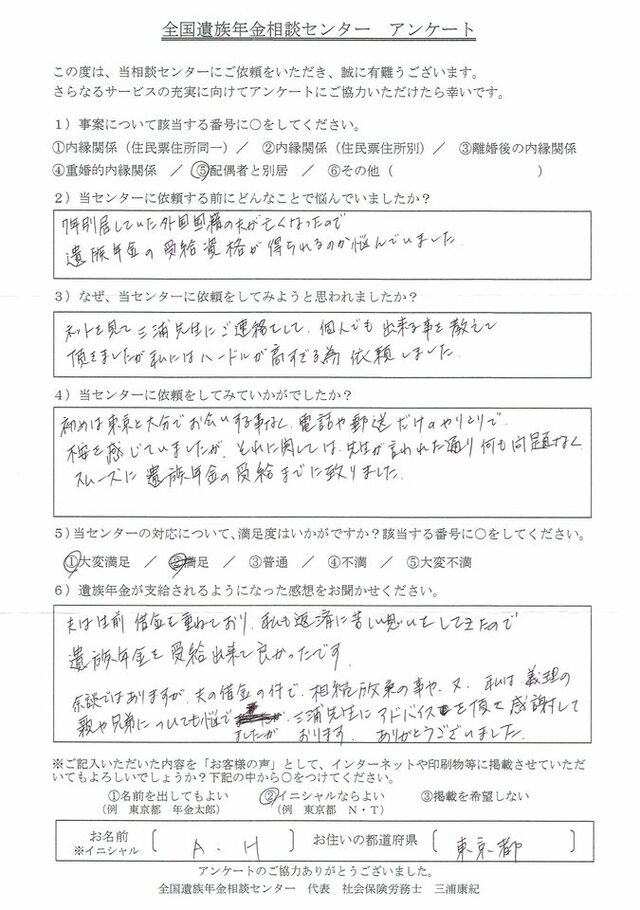 全国遺族年金相談センター　アンケート
この度は、当相談センターにご依頼をいただき、誠に有難うございます。
さらなるサービスの充実に向けてアンケートにご協力いただけたら幸いです。
１）事案について該当する番号に○をしてください。
①内縁関係（住民票住所同一）／　②内縁関係（住民票住所別）／　③離婚後の内縁関係
④重婚的内縁関係　／　⑤配偶者と別居　／　⑥その他（　　　　　　　　）
２）当センターに依頼する前にどんなことで悩んでいましたか？
7年別居していた外国国籍の夫が亡くなったので
遺族年金の受給資格が得られるのか悩んでいました.
３）なぜ、当センターに依頼をしてみようと思われましたか？
ネットを見て三浦先生にご連絡をして、個人でも出来る事を教えて
頂きましたが私にはハードルが高すぎる為依頼しました.
４）当センターに依頼をしてみていかがでしたか？
初めは東京と大分でお会いする事なく、電話や郵送だけのやりとりで、
不安を感じていましたが、それに関しては、先生が言われた通り何も問題なく
スムーズに遺族年金の受給までに致りました.
５）当センターの対応について、満足度はいかがですか？該当する番号に○をしてください。
①大変満足　／　②満足　／　③普通　／　④不満　／　⑤大変不満
６）遺族年金が支給されるようになった感想をお聞かせください。
夫は生前借金を重ねており、私も返済に苦しい思いをしてきたので
遺族年金を受給出来て良かったです.
余談ではありますが、夫の借金の件で、相続放棄の事や、又、私は義理の
親や兄弟についても悩で　三浦先生にアドバイスを頂き感謝して
ましたが　おります. ありがとうございました.
※ご記入いただいた内容を「お客様の声」として、インターネットや印刷物等に掲載させていただ
いてもよろしいでしょうか？下記の中から○をつけてください。
①名前を出してもよい　②イニシャルならよい　③掲載を希望しない
（例　東京都　年金太郎）　（例　東京都　Ｎ・Ｔ）
お名前　A.H　お住いの都道府県　東京都
※イニシャル
アンケートのご協力ありがとうございました。
全国遺族年金相談センター　代表　社会保険労務士　三浦康紀